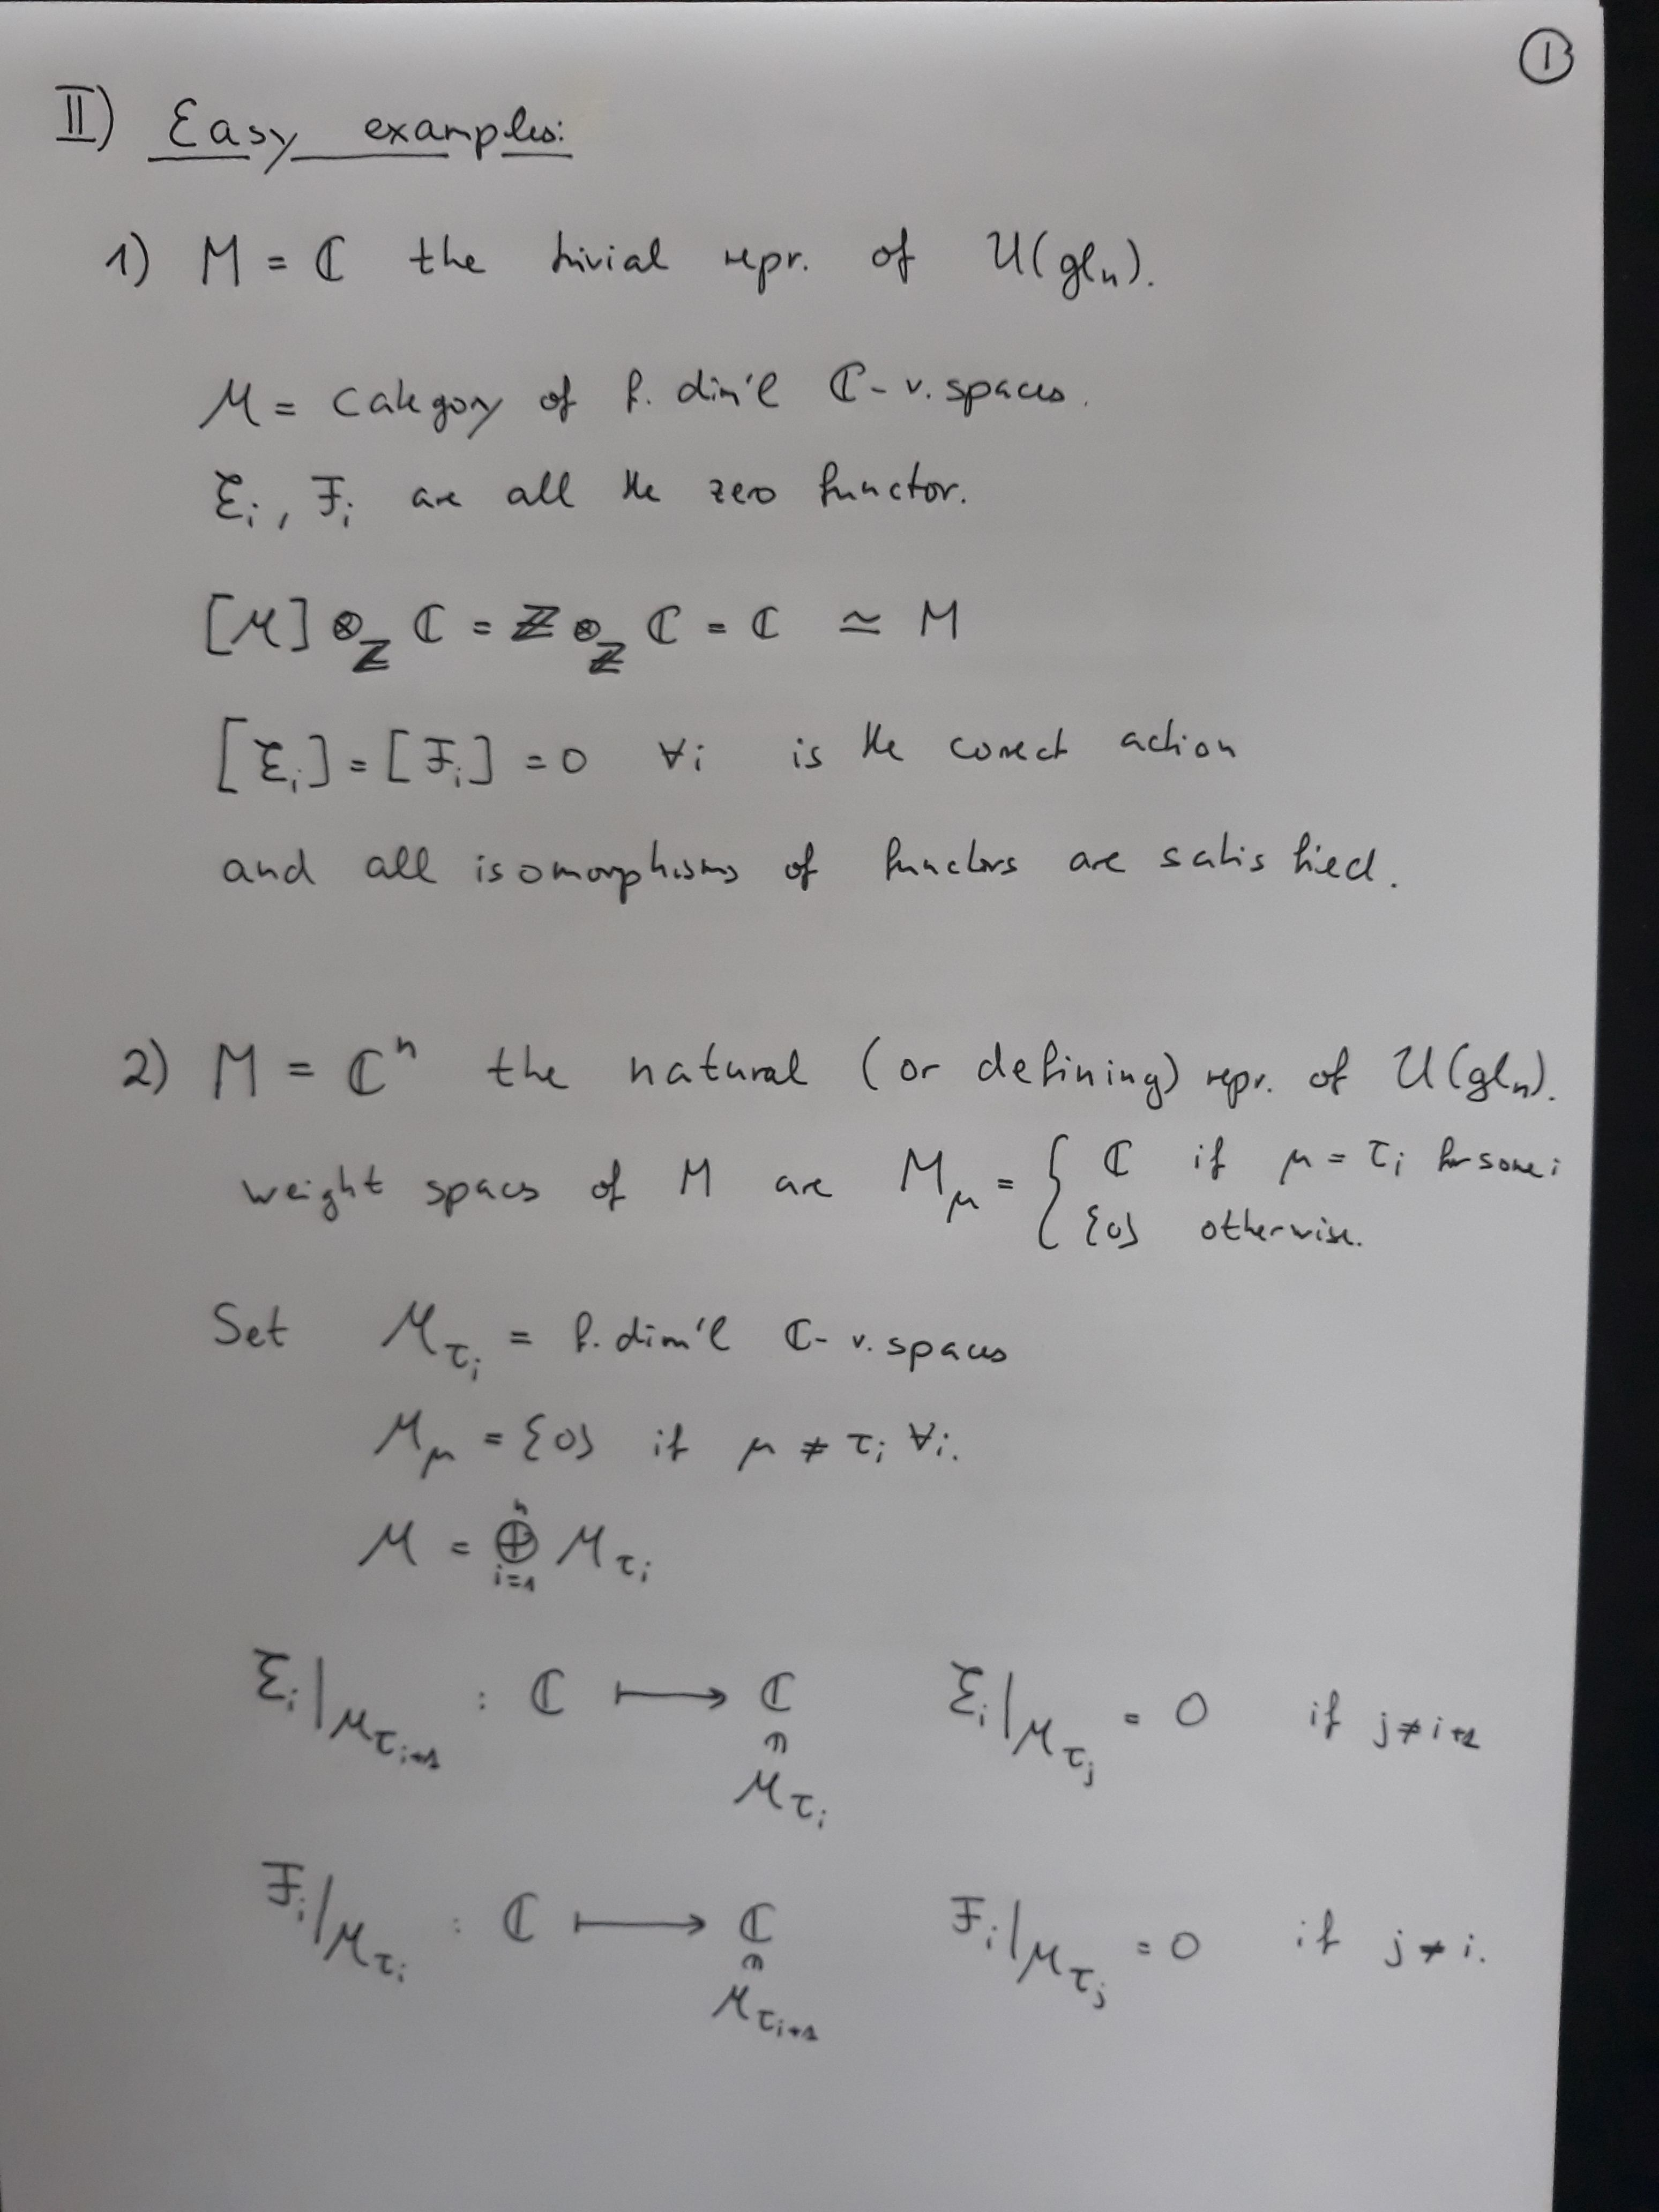 ①
II) Easy examples:
1) M = ℂ the trivial repr. of U(gl_n).
ℳ = category of f. dim'l ℂ-v. spaces.
ℰ_i, ℱ_i are all the zero functor.
[ℳ] ⊗_ℤ ℂ = ℤ ⊗_ℤ ℂ = ℂ ≃ M
[ℰ_i] = [ℱ_i] = 0 ∀i is the correct action
and all isomorphisms of functors are satisfied.
2) M = ℂ^n the natural (or defining) repr. of U(gl_n).
weight spaces of M are M_μ = { ℂ if μ = τ_i for some i
{0} otherwise.
Set ℳ_{τ_i} = f. dim'l ℂ-v. spaces
ℳ_μ = {0} if μ ≠ τ_i ∀i.
ℳ = ⊕_{i=1}^n ℳ_{τ_i}
ℰ_i|_{ℳ_{τ_{i+1}}} : ℂ ⟼ ℂ ℰ_i|_{ℳ_{τ_j}} = 0 if j ≠ i+1
∈
ℳ_{τ_i}
ℱ_i|_{ℳ_{τ_i}} : ℂ ⟼ ℂ ℱ_i|_{ℳ_{τ_j}} = 0 if j ≠ i.
∈
ℳ_{τ_{i+1}}